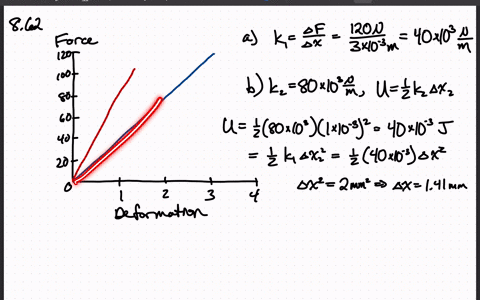 8.62
Force
120
100
80
60
40
20
0
1
2
3
4
Deformation
a) k₁ = ΔF/Δx = 120N/3×10⁻³m = 40×10³ N/m
b) k₂ = 80×10³ N/m, U = ½ k₂ Δx₂
U = ½(80×10³)(1×10⁻³)² = 40×10⁻³ J
= ½ k₁ Δx₂² = ½(40×10⁻³)Δx²
Δx² = 2mm² ⇒ Δx = 1.41mm